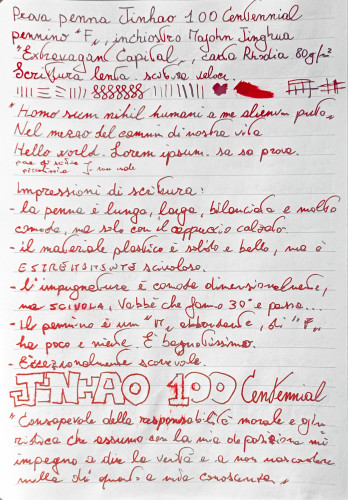 Prova penna Jinhao 100 Centennial
pennino "F", inchiostro Majohn Jinghua
"Extravagant Capital", carta Rhodia 80g/m²
Scrittura lenta. scrittura veloce.
"Homo sum nihil humani a me alienum puto"
Nel mezzo del cammin di nostra vita
Hello world. Lorem ipsum. sa sa prova.
piccolina
Impressioni di scrittura:
- la penna è lunga, larga, bilanciata e molto
comoda, ma solo con il cappuccio calzato.
- il materiale plastico è solido e bello, ma è
ESTREMAMENTE scivoloso.
- l'impugnatura è comoda dimensionalmente,
ma SCIVOLA. Vabbè che fanno 30° e passa...
- Il pennino è un "M" abbondante, di "F"
ha poco e niente. È bagnatissimo.
- Eccezionalmente scorrevole.
JINHAO 100 Centennial
"Consapevole della responsabilità morale e giu
ridica che assumo con la mia deposizione mi
impegno a dire la verità e a non nascondere
nulla di quanto a mia conoscenza."